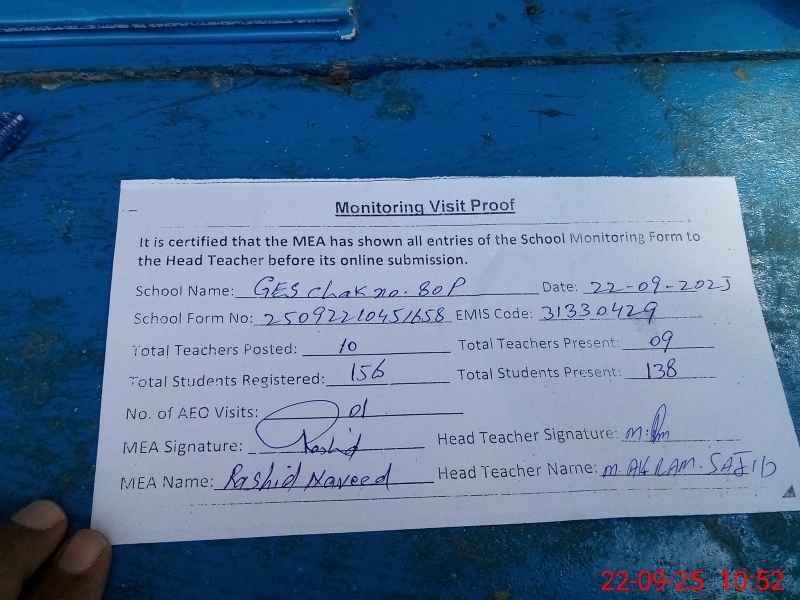 Monitoring Visit Proof
It is certified that the MEA has shown all entries of the School Monitoring Form to
the Head Teacher before its online submission.
School Name: GES chak no. 80P Date: 22-09-2025
School Form No: 25092210451658 EMIS Code: 31330429
Total Teachers Posted: 10 Total Teachers Present: 09
Total Students Registered: 156 Total Students Present: 138
No. of AEO Visits: 01
MEA Signature: Rashid Head Teacher Signature:
MEA Name: Rashid Naveed Head Teacher Name: M. AKRAM. SAJID
22-09-25 10:52